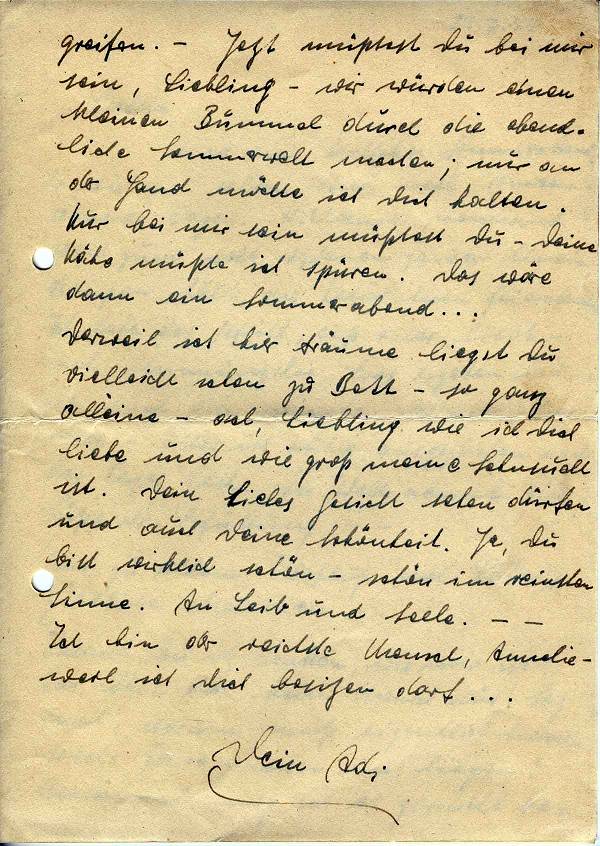 greifen. – Jetzt müßtest Du bei mir
sein, Liebling – wir würden einen
kleinen Bummel durch die abend-
liche Sommerwelt machen; nur an
der Hand möchte ich Dich halten.
Nur bei mir sein müßtest Du – Deine
Nähe müßte ich spüren. Das wäre
dann ein Sommerabend...
Derweil ich hier träume liegst Du
vielleicht schon zu Bett – so ganz
alleine – ach, Liebling wie ich Dich
liebe und wie groß meine Sehnsucht
ist. Dein liebes Gesicht sehen dürfen
und auch Deine Schönheit. Ja, Du
bist wirklich schön – schön im reinsten
Sinne. An Leib und Seele. – –
Ich bin der reichste Mensch, Annelie –
weil ich Dich besitzen darf...
Dein Adi